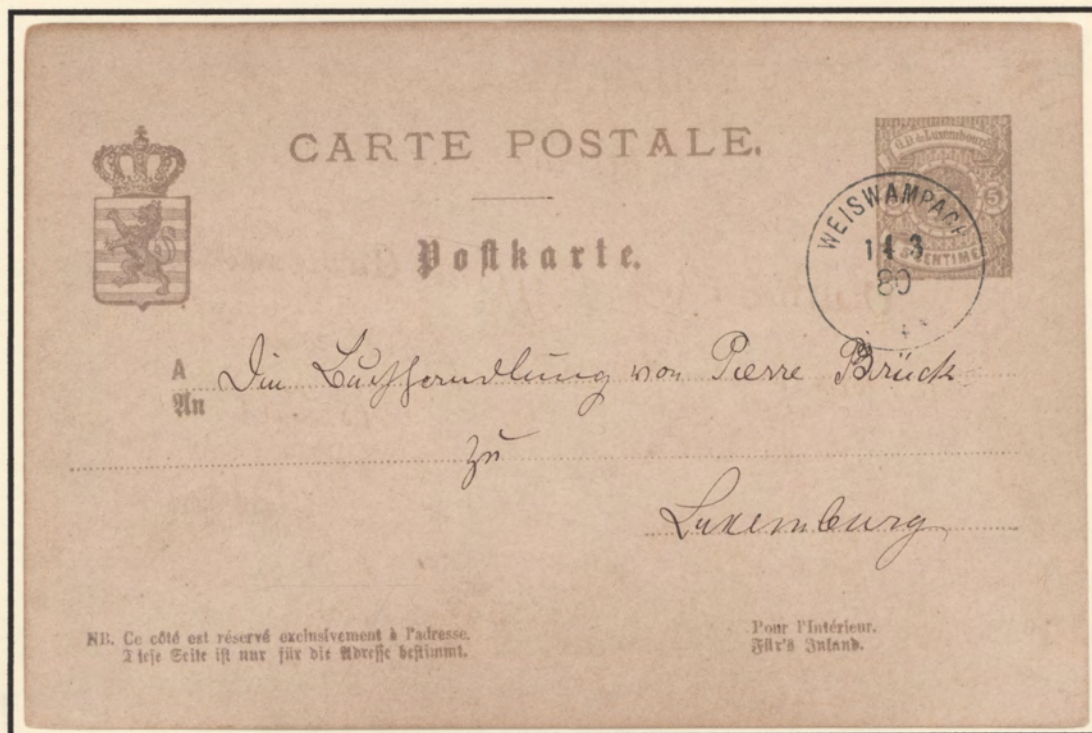 CARTE POSTALE.
Postkarte.
G.D. de Luxembourg
5 5
5 CENTIMES
WEISWAMPACH
14 3
80
A
An
Die Buchhandlung von Pierre Brück
zu
Luxemburg
NB. Ce côté est réservé exclusivement à l'adresse.
Diese Seite ist nur für die Adresse bestimmt.
Pour l'Intérieur.
Für's Inland.